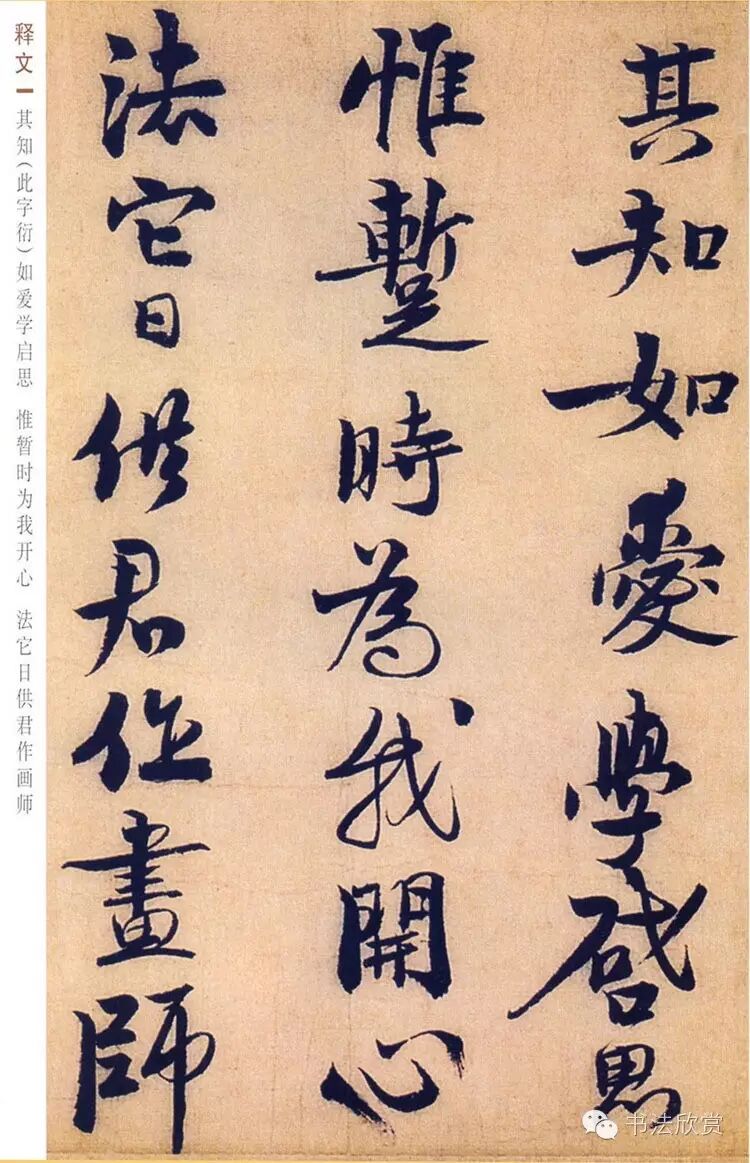 其知如愛學啓思
惟蹔時為我開心
法它日供君作畫師
释文 其知(此字衍)如爱学启思 惟暂时为我开心 法它日供君作画师
书法欣赏